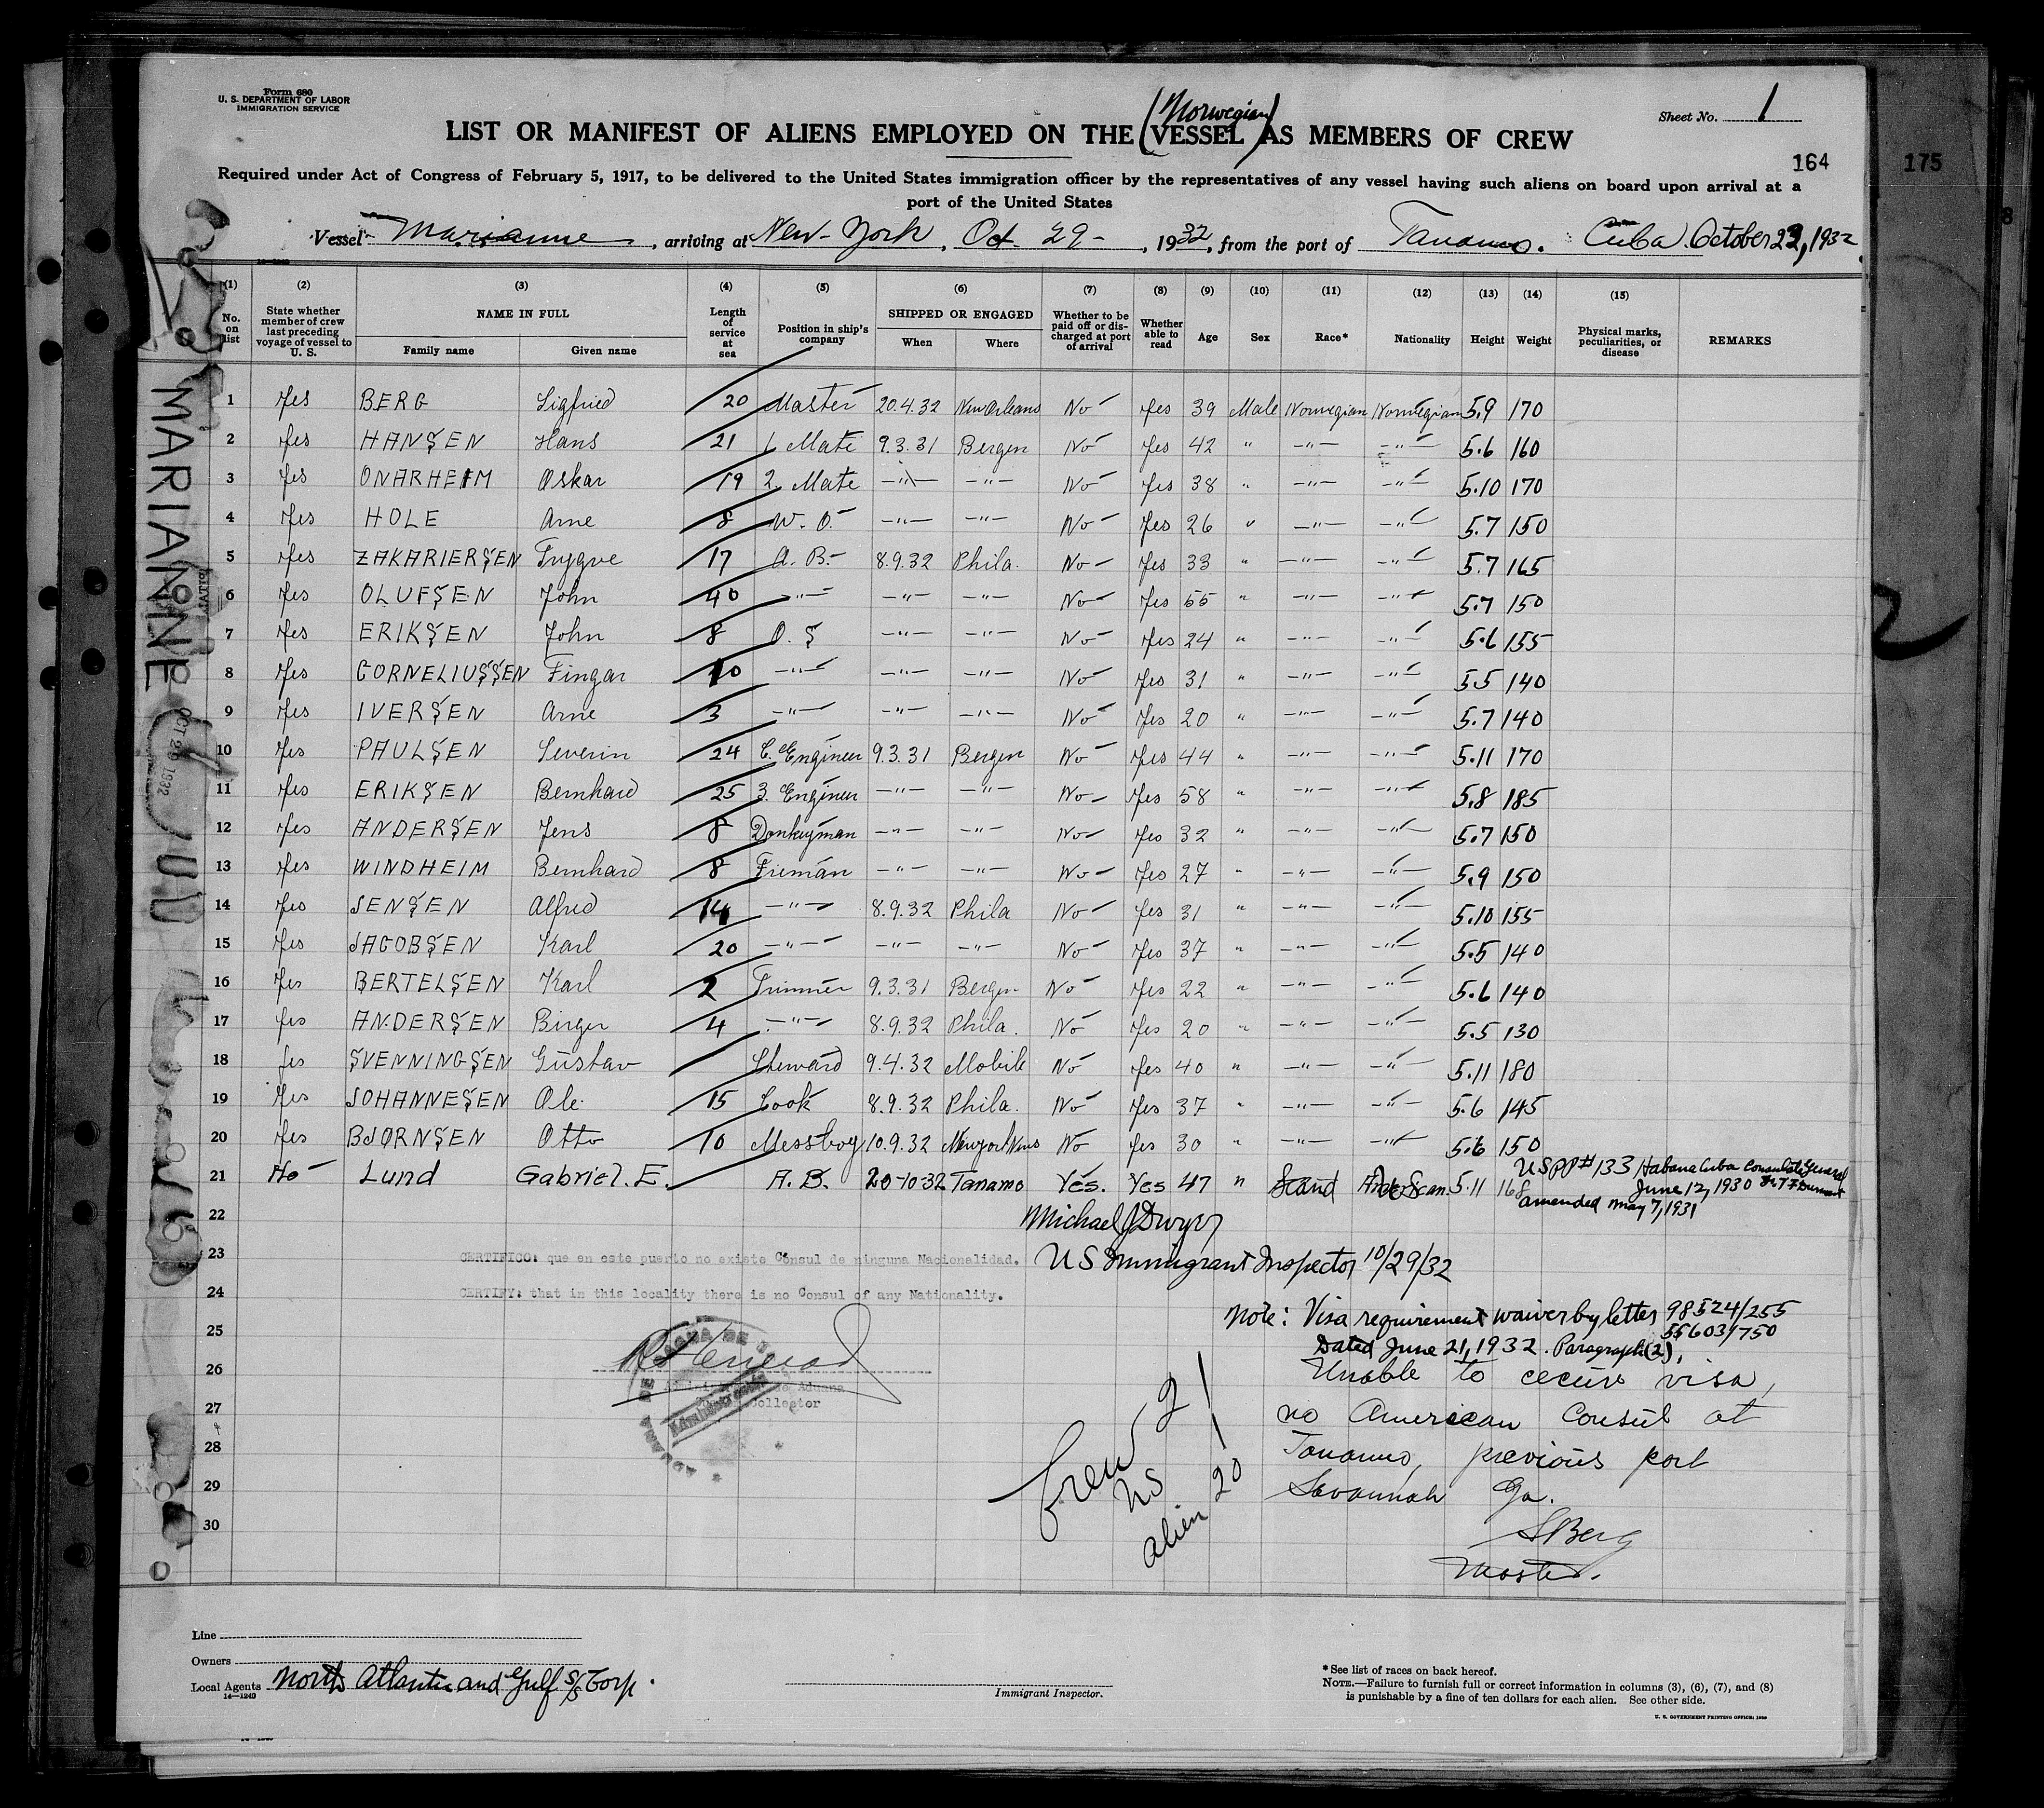 Form 680
U. S. DEPARTMENT OF LABOR
IMMIGRATION SERVICE
Sheet No. 1
(Norwegian)
LIST OR MANIFEST OF ALIENS EMPLOYED ON THE VESSEL AS MEMBERS OF CREW
164
175
Required under Act of Congress of February 5, 1917, to be delivered to the United States immigration officer by the representatives of any vessel having such aliens on board upon arrival at a
port of the United States
Vessel Marianne, arriving at New-York, Oct 29-, 1932, from the port of Tanamo. Cuba October 22, 1932
(1) (2) (3) (4) (5) (6) (7) (8) (9) (10) (11) (12) (13) (14) (15)
No. on list | State whether member of crew last preceding voyage of vessel to U. S. | NAME IN FULL | Family name | Given name | Length of service at sea | Position in ship's company | SHIPPED OR ENGAGED | When | Where | Whether to be paid off or discharged at port of arrival | Whether able to read | Age | Sex | Race* | Nationality | Height | Weight | Physical marks, peculiarities, or disease | REMARKS
1 Yes BERG Sigfried 20 Master 20.4.32 New Orleans No Yes 39 Male Norwegian Norwegian 5.9 170
2 Yes HANSEN Hans 21 1 Mate 9.3.31 Bergen No Yes 42 " -"- -"- 5.6 160
3 Yes ONARHEIM Oskar 19 2 Mate -"- -"- No Yes 38 " -"- -"- 5.10 170
4 Yes HOLE Arne 8 W. O. -"- -"- No Yes 26 " -"- -"- 5.7 150
5 Yes ZAKARIERSEN Trygve 17 A. B. 8.9.32 Phila. No Yes 33 " -"- -"- 5.7 165
6 Yes OLUFSEN John 40 -"- -"- -"- No Yes 55 " -"- -"- 5.7 150
7 Yes ERIKSEN John 8 O. S -"- -"- No Yes 24 " -"- -"- 5.6 155
8 Yes CORNELIUSSEN Fingar 10 -"- -"- -"- No Yes 31 " -"- -"- 5.5 140
9 Yes IVERSEN Arne 3 -"- -"- -"- No Yes 20 " -"- -"- 5.7 140
10 Yes PAULSEN Severin 24 C. Engineer 9.3.31 Bergen No Yes 44 " -"- -"- 5.11 170
11 Yes ERIKSEN Bernhard 25 3. Engineer -"- -"- No Yes 58 " -"- -"- 5.8 185
12 Yes ANDERSEN Jens 8 Donkeyman -"- -"- No Yes 32 " -"- -"- 5.7 150
13 Yes WINDHEIM Bernhard 8 Fireman -"- -"- No Yes 27 " -"- -"- 5.9 150
14 Yes JENSEN Alfred 14 -"- 8.9.32 Phila No Yes 31 " -"- -"- 5.10 155
15 Yes JACOBSEN Karl 20 -"- -"- -"- No Yes 37 " -"- -"- 5.5 140
16 Yes BERTELSEN Karl 2 Trimmer 9.3.31 Bergen No Yes 22 " -"- -"- 5.6 140
17 Yes ANDERSEN Birger 4 -"- 8.9.32 Phila. No Yes 20 " -"- -"- 5.5 130
18 Yes SVENNINGSEN Gustav Steward 9.4.32 Mobile No Yes 40 " -"- -"- 5.11 180
19 Yes JOHANNESEN Ole 15 Cook 8.9.32 Phila. No Yes 37 " -"- -"- 5.6 145
20 Yes BJØRNSEN Otto 10 Messboy 10.9.32 Newport News No Yes 30 " -"- -"- 5.6 150
21 No Lund Gabriel. E. A. B. 20-10-32 Tanamo Yes. Yes 47 " Scand 5.11 168
USPP# 133 Habana Cuba Consulate General
June 12, 1930
amended May 7, 1931
22
Michael J Dwyer
23
CERTIFICO: que en este puerto no existe Cónsul de ninguna Nacionalidad.
US Immigrant Inspector 10/29/32
24
CERTIFY: that in this locality there is no Consul of any Nationality.
Note: Visa requirement waiver by letter 98524/255
55603/750
25
Dated June 21, 1932. Paragraph (2),
26
Unable to secure visa,
Aduana
Collector
27
no American Consul at
28
Tanamo, previous port
29
Savannah Ga.
30
SBerg
Master.
Crew 21
US 1
alien 20
MARIANNE
OCT 29 1932
Line
Owners
Local Agents North Atlantic and Gulf S/S Corp.
14—1240
Immigrant Inspector.
*See list of races on back hereof.
NOTE.—Failure to furnish full or correct information in columns (3), (6), (7), and (8)
is punishable by a fine of ten dollars for each alien. See other side.
U. S. GOVERNMENT PRINTING OFFICE: 1929